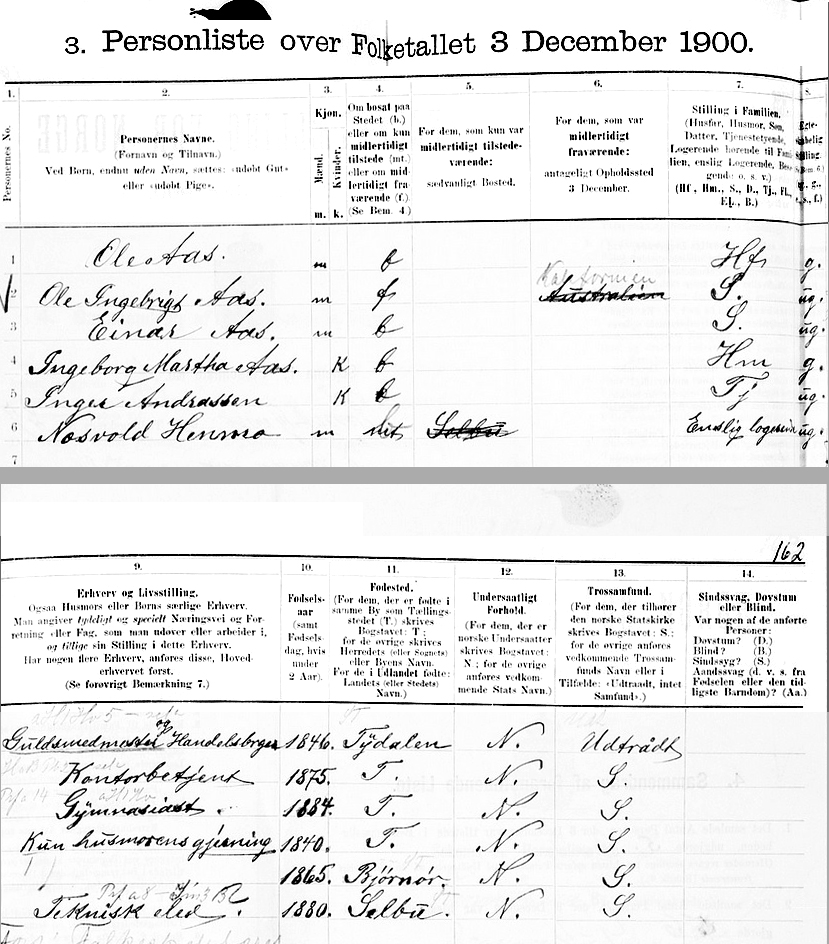 3. Personliste over Folketallet 3 December 1900.
1. 2. 3. 4. 5. 6. 7. 8.
Personernes No.
Personernes Navne.
(Fornavn og Tilnavn.)
Ved Børn, endnu uden Navn, sættes: «udøbt Gut»
eller «udøbt Pige».
Kjøn.
Mænd.
Kvinder.
m. k.
Om bosat paa
Stedet (b.)
eller om kun
midlertidigt
tilstede (mt.)
eller om mid-
lertidigt fra-
værende (f.)
(Se Bem. 4.)
For dem, som kun var
midlertidigt tilstede-
værende:
sædvanligt Bosted.
For dem, som var
midlertidigt
fraværende:
antageligt Opholdssted
3 December.
Stilling i Familien.
(Husfar, Husmor, Søn,
Datter, Tjenestetyende,
Logerende hørende til Fami-
lien, enslig Logerende, Besø-
gende o. s. v.)
(Hf, Hm., S., D., Tj., Fl.,
El., B.)
1 Ole Aas. m b Hf g.
Kalifornien
2 Ole Ingebrigt Aas. m f Australien S. ug.
3 Einar Aas. m b S. ug.
4 Ingeborg Martha Aas. K b Hm g.
5 Inger Andrassen K b Tj ug.
6 Nosvold Henmo m mt Selbu Enslig logerende ug.
7
162
9. 10. 11. 12. 13. 14.
Erhverv og Livsstilling.
Ogsaa Husmors eller Børns særlige Erhverv.
Man angiver tydeligt og specielt Næringsvei og For-
retning eller Fag, som man udøver eller arbeider i,
og tillige sin Stilling i dette Erhverv.
Har nogen flere Erhverv, anføres disse, Hoved-
erhvervet først.
(Se forøvrigt Bemærkning 7.)
Fødsels-
aar
(samt
Fødsels-
dag, hvis
under
2 Aar).
Fødested.
(For dem, der er fødte i
samme By som Tællings-
stedet (T.) skrives
Bogstavet: T;
for de øvrige skrives
Herredets (eller Sognets)
eller Byens Navn.
For de i Udlandet fødte:
Landets (eller Stedets)
Navn.)
Undersaatligt
Forhold.
(For dem, der er
norske Undersaatter
skrives Bogstavet:
N.; for de øvrige
anføres vedkom-
mende Stats Navn).
Trossamfund.
(For dem, der tilhører
den norske Statskirke
skrives Bogstavet: S.;
for de øvrige anføres
vedkommende Trossam-
funds Navn eller i
Tilfælde: «Udtraadt, intet
Samfund».)
Sindssvag, Døvstum
eller Blind.
Var nogen af de anførte
Personer:
Døvstum? (D.)
Blind? (B.)
Sindssyg? (S.)
Aandssvag (d. v. s. fra
Fødselen eller den tid-
ligste Barndom)? (Aa.)
Guldsmedmester og Handelsborger 1846. Tydalen N. Udtrådt
Kontorbetjent 1875. T. N. S.
Gymnasiast. 1884. T. N. S.
Kun husmorens gjerning 1840. T. N. S.
1865. Bjørnør. N. S.
Teknisk elev. 1880. Selbu. N. S.